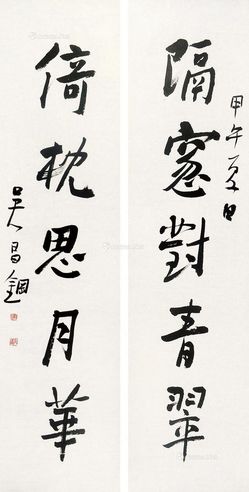 隔窓對青翠
甲午夏日
倚枕思月華
吳昌鈿